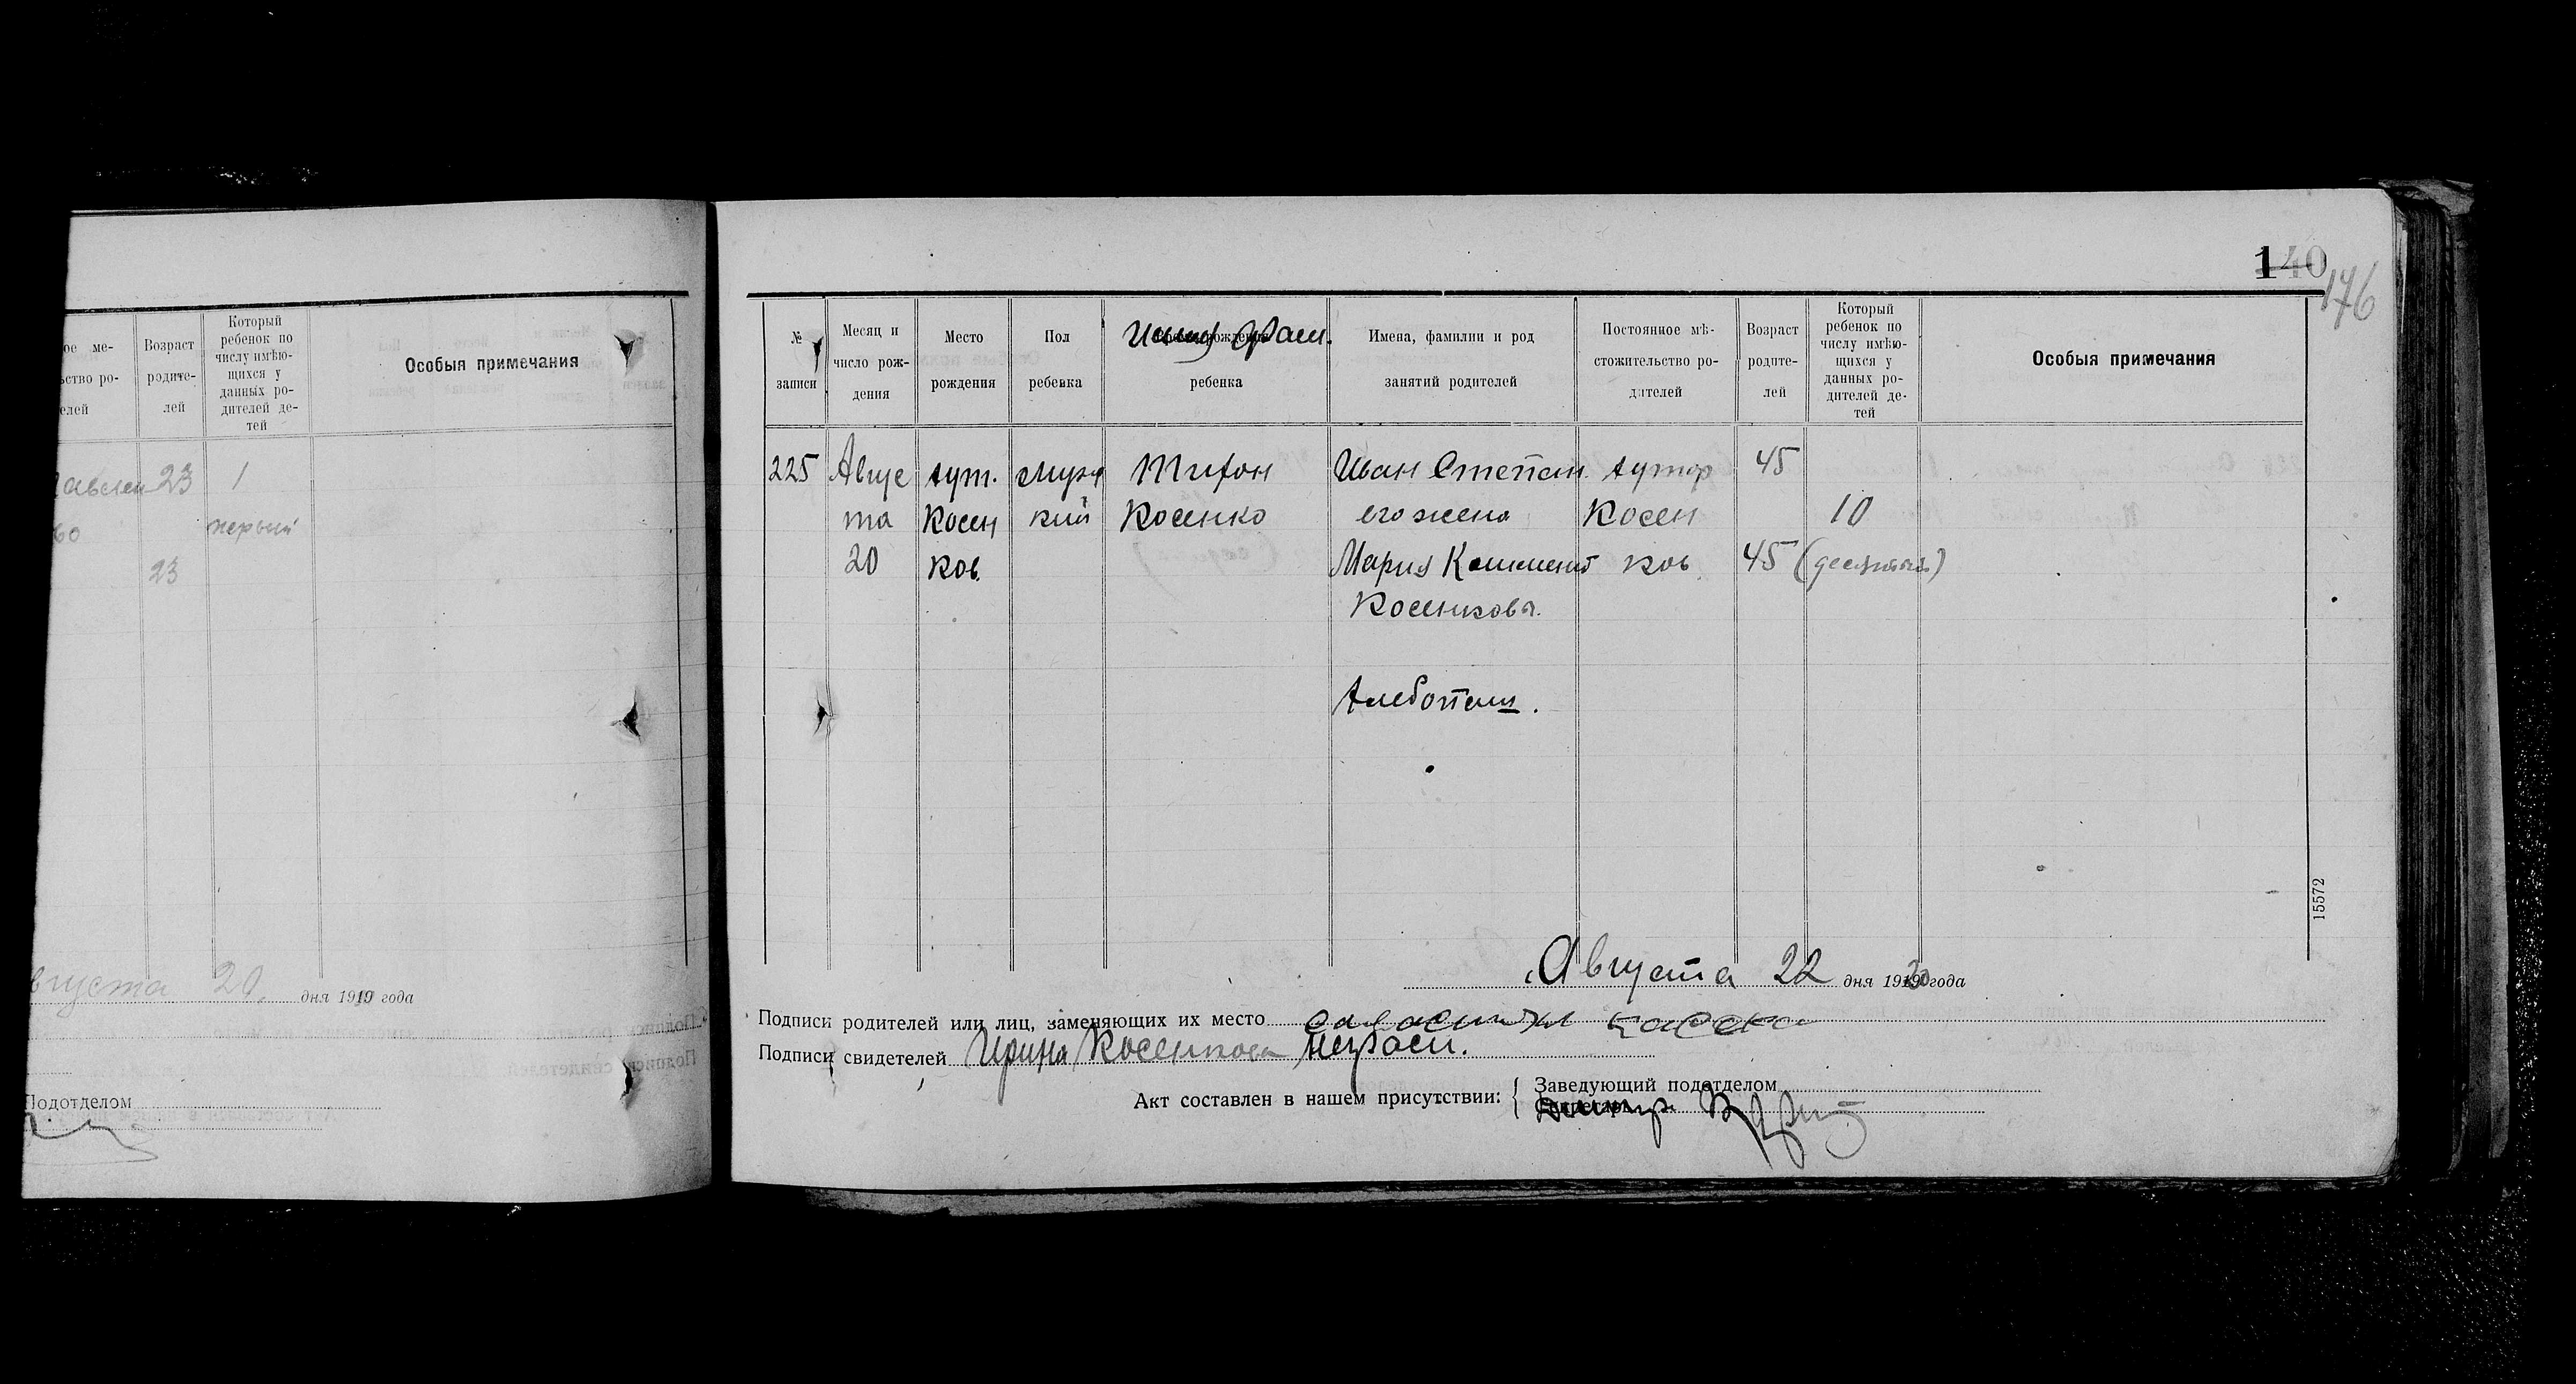 140
176
ое ме-
ьство ро-
елей
Возраст
родите-
лей
Который
ребенок по
числу имѣю-
щихся у
данных ро-
дителей де-
тей
Особыя примечания
23
1
первый
23
вгуста 20 дня 1919 года
Подотделом
№
записи
Месяц и
число рож-
дения
Место
рождения
Пол
ребенка
ребенка
Имена, фамилии и род
занятий родителей
Постоянное мѣ-
стожительство ро-
дителей
Возраст
родите-
лей
Который
ребенок по
числу имѣю-
щихся у
данных ро-
дителей де-
тей
Особыя примечания
225 Авгус хут. Муж Тихон Иван Степан. хутор 45
та Косен кий Косенко его жена Косен 10
20 ков. Мария Климент ков 45 (десятый)
Косенковы.
Хлебопаш.
15572
Августа 22 дня 1920 года
Подписи родителей или лиц, заменяющих их место
Подписи свидетелей Ирина Косенкова
Акт составлен в нашем присутствии:
Заведующий подотделом